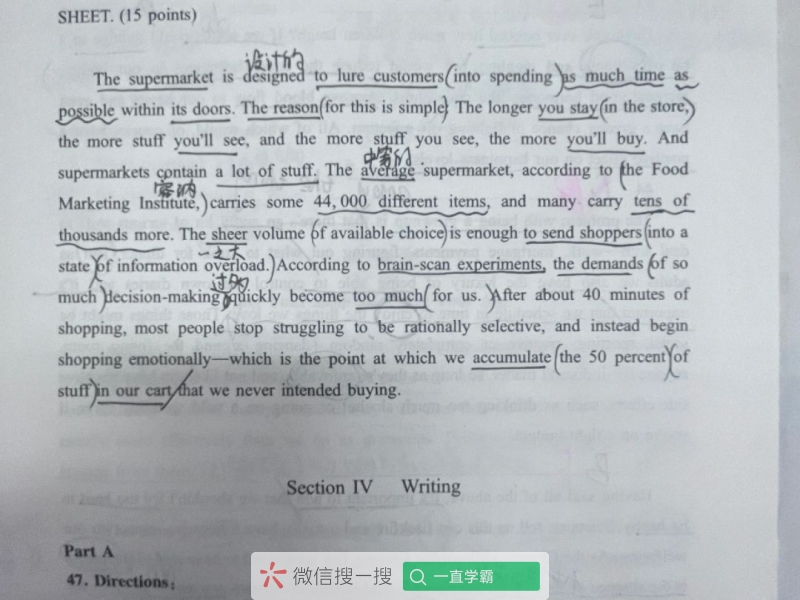 SHEET. (15 points)
设计的
The supermarket is designed to lure customers into spending as much time as
possible within its doors. The reason for this is simple: The longer you stay in the store,
the more stuff you'll see, and the more stuff you see, the more you'll buy. And
supermarkets contain a lot of stuff. The average supermarket, according to the Food
容纳
Marketing Institute, carries some 44,000 different items, and many carry tens of
thousands more. The sheer volume of available choice is enough to send shoppers into a
state of information overload. According to brain-scan experiments, the demands of so
过多
much decision-making quickly become too much for us. After about 40 minutes of
shopping, most people stop struggling to be rationally selective, and instead begin
shopping emotionally—which is the point at which we accumulate the 50 percent of
stuff in our cart that we never intended buying.
Section IV Writing
Part A
47. Directions:
微信搜一搜 一直学霸